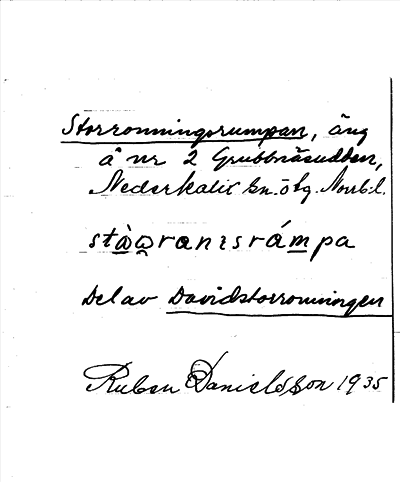 Storronningsrumpan, äng
å nr 2 Grubbnäsudden,
Nederkalix sn. ö lg. Norrb. l.
Del av Davidstorronningen
Ruben Danielsson 1935